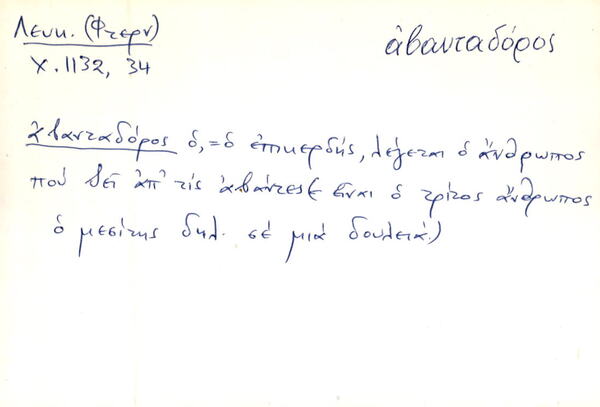 Λευκ. (Φτερν)
ἀβανταδόρος
Χ. 1132, 34
ἀβανταδόρος ὁ, = ὁ ἐπικερδής, λέγεται ὁ ἄνθρωπος
πού ζεῖ ἀπ' τίς ἀβάντες ( εἶναι ὁ τρίτος ἄνθρωπος
ὁ μεσίτης δηλ. σέ μιά δουλειά.)